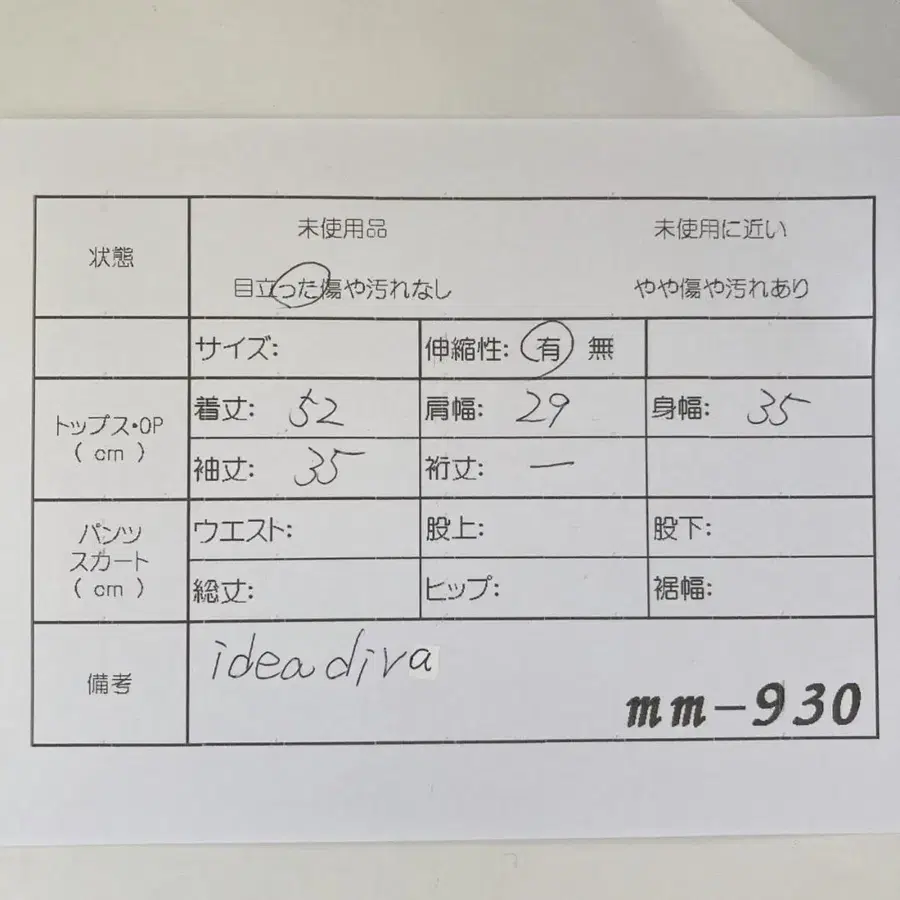 状態
未使用品 未使用に近い
目立った傷や汚れなし やや傷や汚れあり
サイズ: 伸縮性: 有 無
トップス・OP
( cm )
着丈: 52 肩幅: 29 身幅: 35
袖丈: 35 裄丈: ー
パンツ
スカート
( cm )
ウエスト: 股上: 股下:
総丈: ヒップ: 裾幅:
備考
idea diva
mm-930